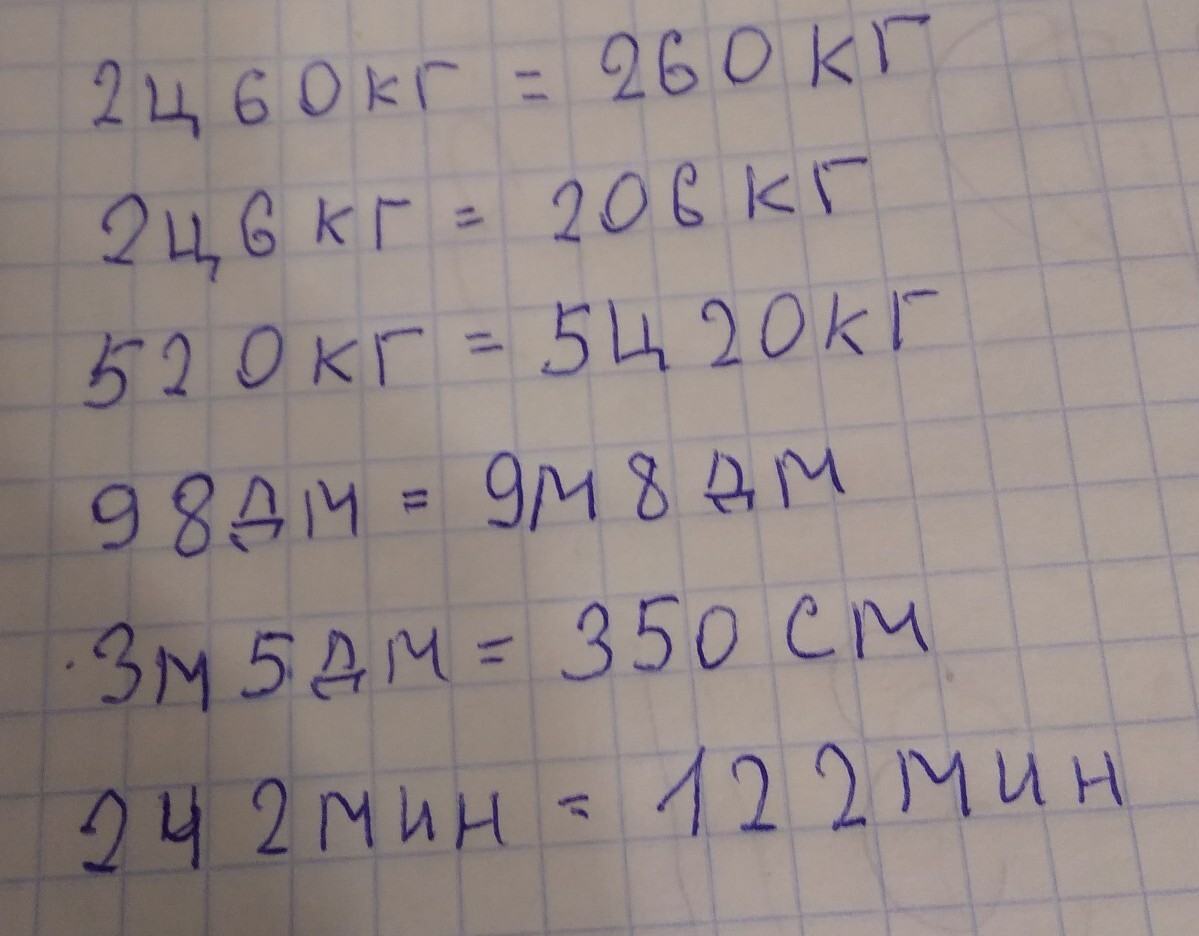 2ц 60кг = 260 кг
2ц 6 кг = 206 кг
520 кг = 5ц 20кг
98дм = 9м 8 дм
3м 5дм = 350 см
2ч 2мин = 122мин